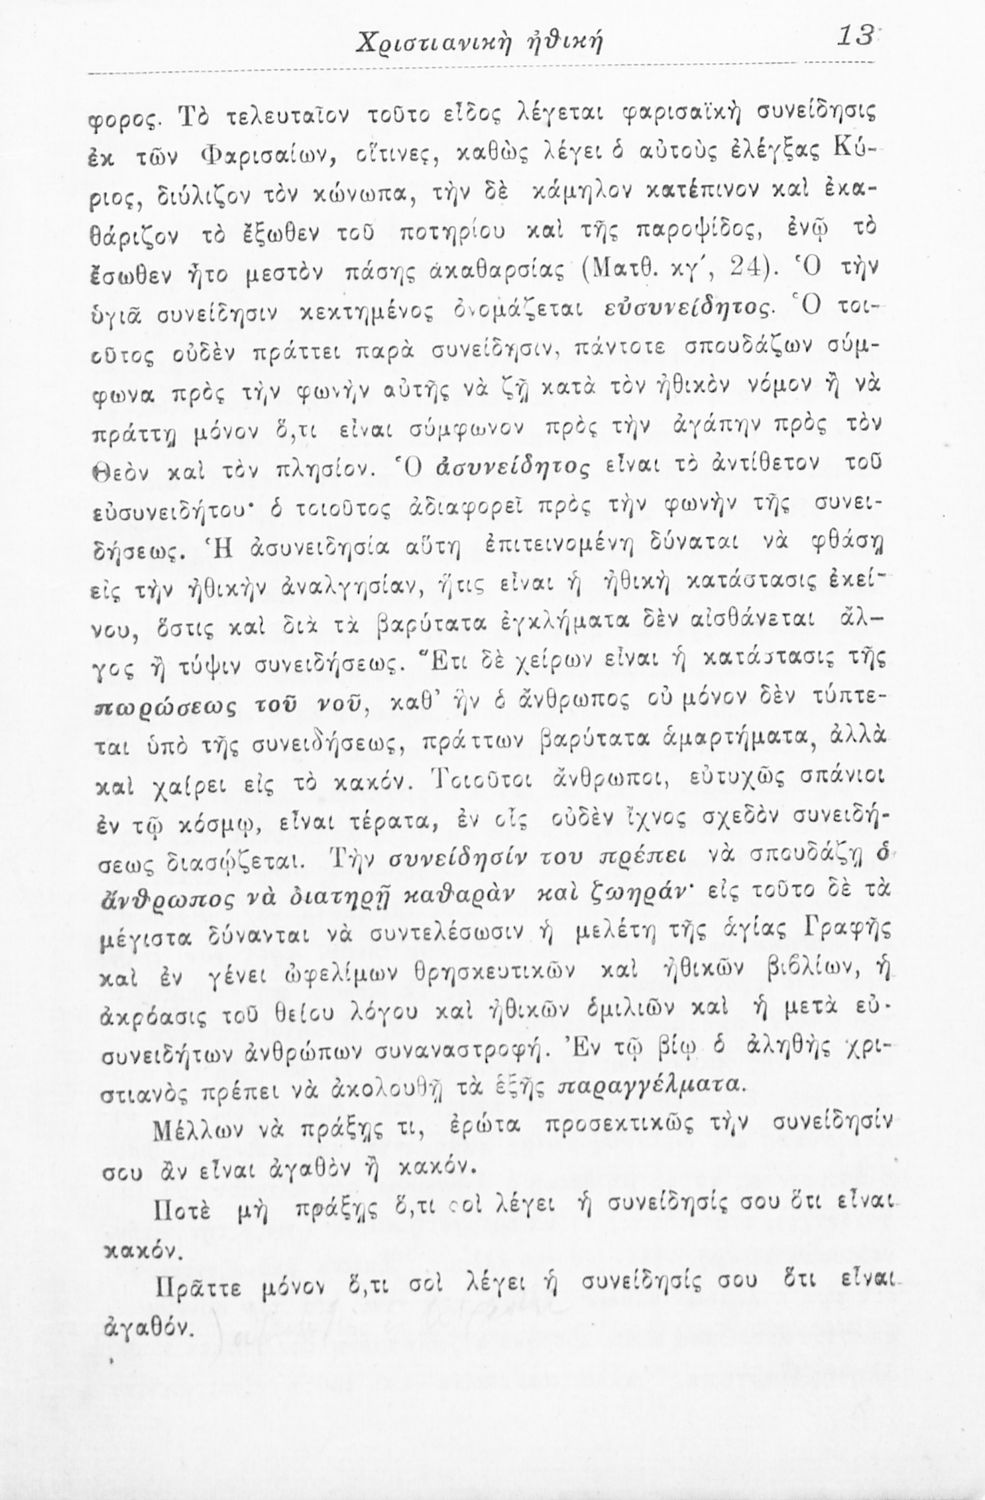 Χριστιανικὴ ἠθική 13
φορος. Τὸ τελευταῖον τοῦτο εἶδος λέγεται φαρισαϊκὴ συνείδησις
ἐκ τῶν Φαρισαίων, οἵτινες, καθὼς λέγει ὁ αὐτοὺς ἐλέγξας Κύ-
ριος, διύλιζον τὸν κώνωπα, τὴν δὲ κάμηλον κατέπινον καὶ ἐκα-
θάριζον τὸ ἔξωθεν τοῦ ποτηρίου καὶ τῆς παροψίδος, ἐνῷ τὸ
ἔσωθεν ἦτο μεστὸν πάσης ἀκαθαρσίας (Ματθ. κγ΄, 24). Ὁ τὴν
ὑγιᾶ συνείδησιν κεκτημένος ὀνομάζεται εὐσυνείδητος. Ὁ τοι-
οῦτος οὐδὲν πράττει παρὰ συνείδησιν, πάντοτε σπουδάζων σύμ-
φωνα πρὸς τὴν φωνὴν αὐτῆς νὰ ζῇ κατὰ τὸν ἠθικὸν νόμον ἢ νὰ
πράττῃ μόνον ὅ,τι εἶναι σύμφωνον πρὸς τὴν ἀγάπην πρὸς τὸν
Θεὸν καὶ τὸν πλησίον. Ὁ ἀσυνείδητος εἶναι τὸ ἀντίθετον τοῦ
εὐσυνειδήτου· ὁ τοιοῦτος ἀδιαφορεῖ πρὸς τὴν φωνὴν τῆς συνει-
δήσεως. Ἡ ἀσυνειδησία αὕτη ἐπιτεινομένη δύναται νὰ φθάσῃ
εἰς τὴν ἠθικὴν ἀναλγησίαν, ἥτις εἶναι ἡ ἠθικὴ κατάστασις ἐκεί-
νου, ὅστις καὶ διὰ τὰ βαρύτατα ἐγκλήματα δὲν αἰσθάνεται ἄλ-
γος ἢ τύψιν συνειδήσεως. Ἔτι δὲ χείρων εἶναι ἡ κατάστασις τῆς
πωρώσεως τοῦ νοῦ, καθ' ἣν ὁ ἄνθρωπος οὐ μόνον δὲν τύπτε-
ται ὑπὸ τῆς συνειδήσεως, πράττων βαρύτατα ἁμαρτήματα, ἀλλὰ
καὶ χαίρει εἰς τὸ κακόν. Τοιοῦτοι ἄνθρωποι, εὐτυχῶς σπάνιοι
ἐν τῷ κόσμῳ, εἶναι τέρατα, ἐν οἷς οὐδὲν ἴχνος σχεδὸν συνειδή-
σεως διασῴζεται. Τὴν συνείδησίν του πρέπει νὰ σπουδάζῃ ὁ
ἄνθρωπος νὰ διατηρῇ καθαρὰν καὶ ζωηράν· εἰς τοῦτο δὲ τὰ
μέγιστα δύνανται νὰ συντελέσωσιν ἡ μελέτη τῆς ἁγίας Γραφῆς
καὶ ἐν γένει ὠφελίμων θρησκευτικῶν καὶ ἠθικῶν βιβλίων, ἡ
ἀκρόασις τοῦ θείου λόγου καὶ ἠθικῶν ὁμιλιῶν καὶ ἡ μετὰ εὐ-
συνειδήτων ἀνθρώπων συναναστροφή. Ἐν τῷ βίῳ ὁ ἀληθὴς χρι-
στιανὸς πρέπει νὰ ἀκολουθῇ τὰ ἑξῆς παραγγέλματα.
Μέλλων νὰ πράξῃς τι, ἐρώτα προσεκτικῶς τὴν συνείδησίν
σου ἂν εἶναι ἀγαθὸν ἢ κακόν.
Ποτὲ μὴ πράξῃς ὅ,τι σοὶ λέγει ἡ συνείδησίς σου ὅτι εἶναι
κακόν.
Πρᾶττε μόνον ὅ,τι σοὶ λέγει ἡ συνείδησίς σου ὅτι εἶναι
ἀγαθόν.